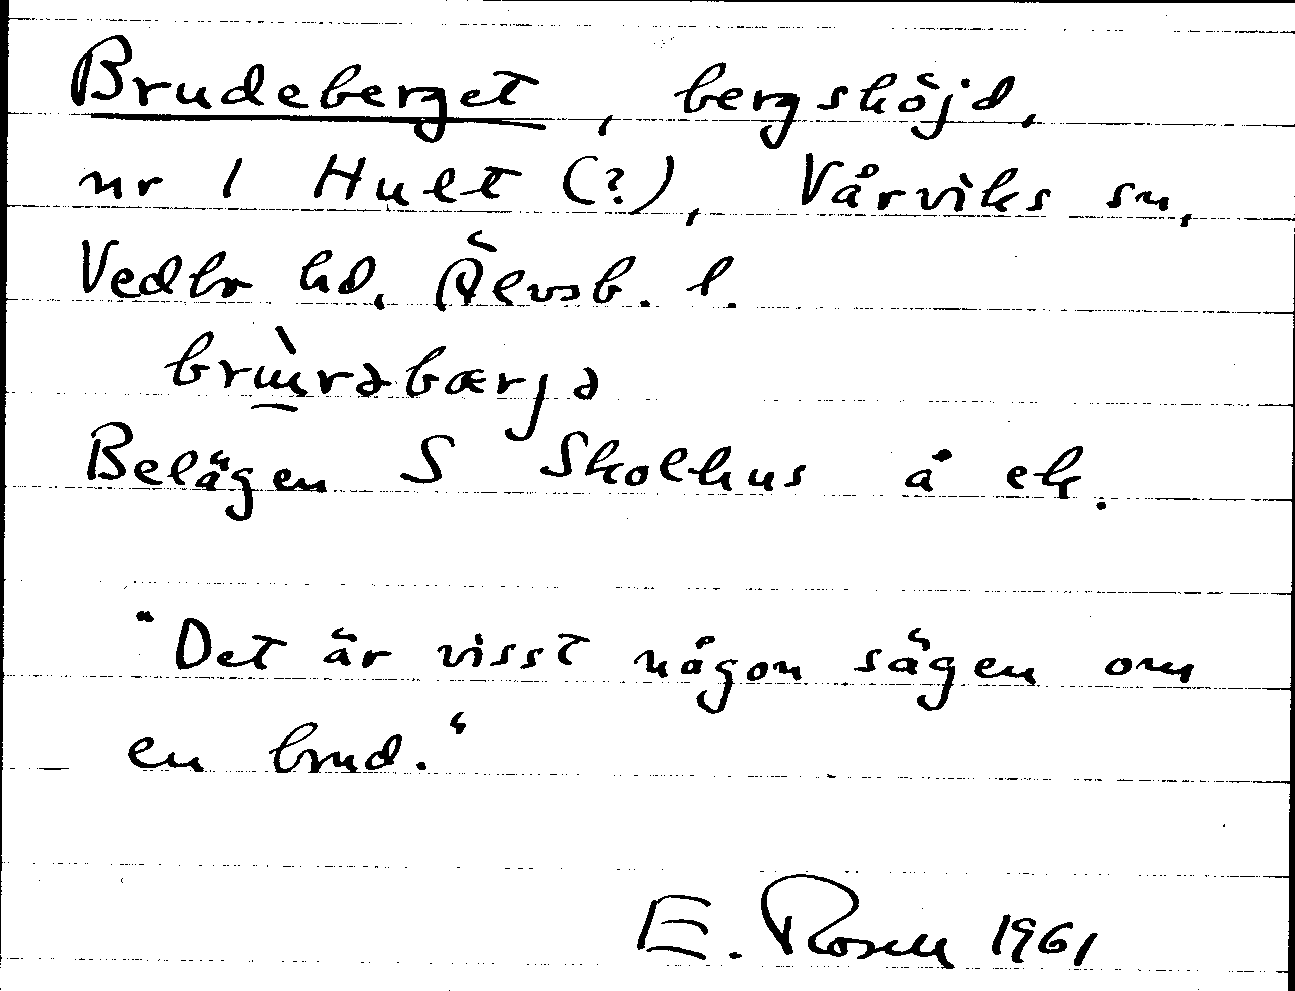 Brudeberget, bergshöjd,
nr 1 Hult (?), Vårviks sn,
Vedbo hd, Älvsb. l.
Belägen S Skolhus å ek.
"Det är visst någon sägen om
en brud."
E. Rosell 1961